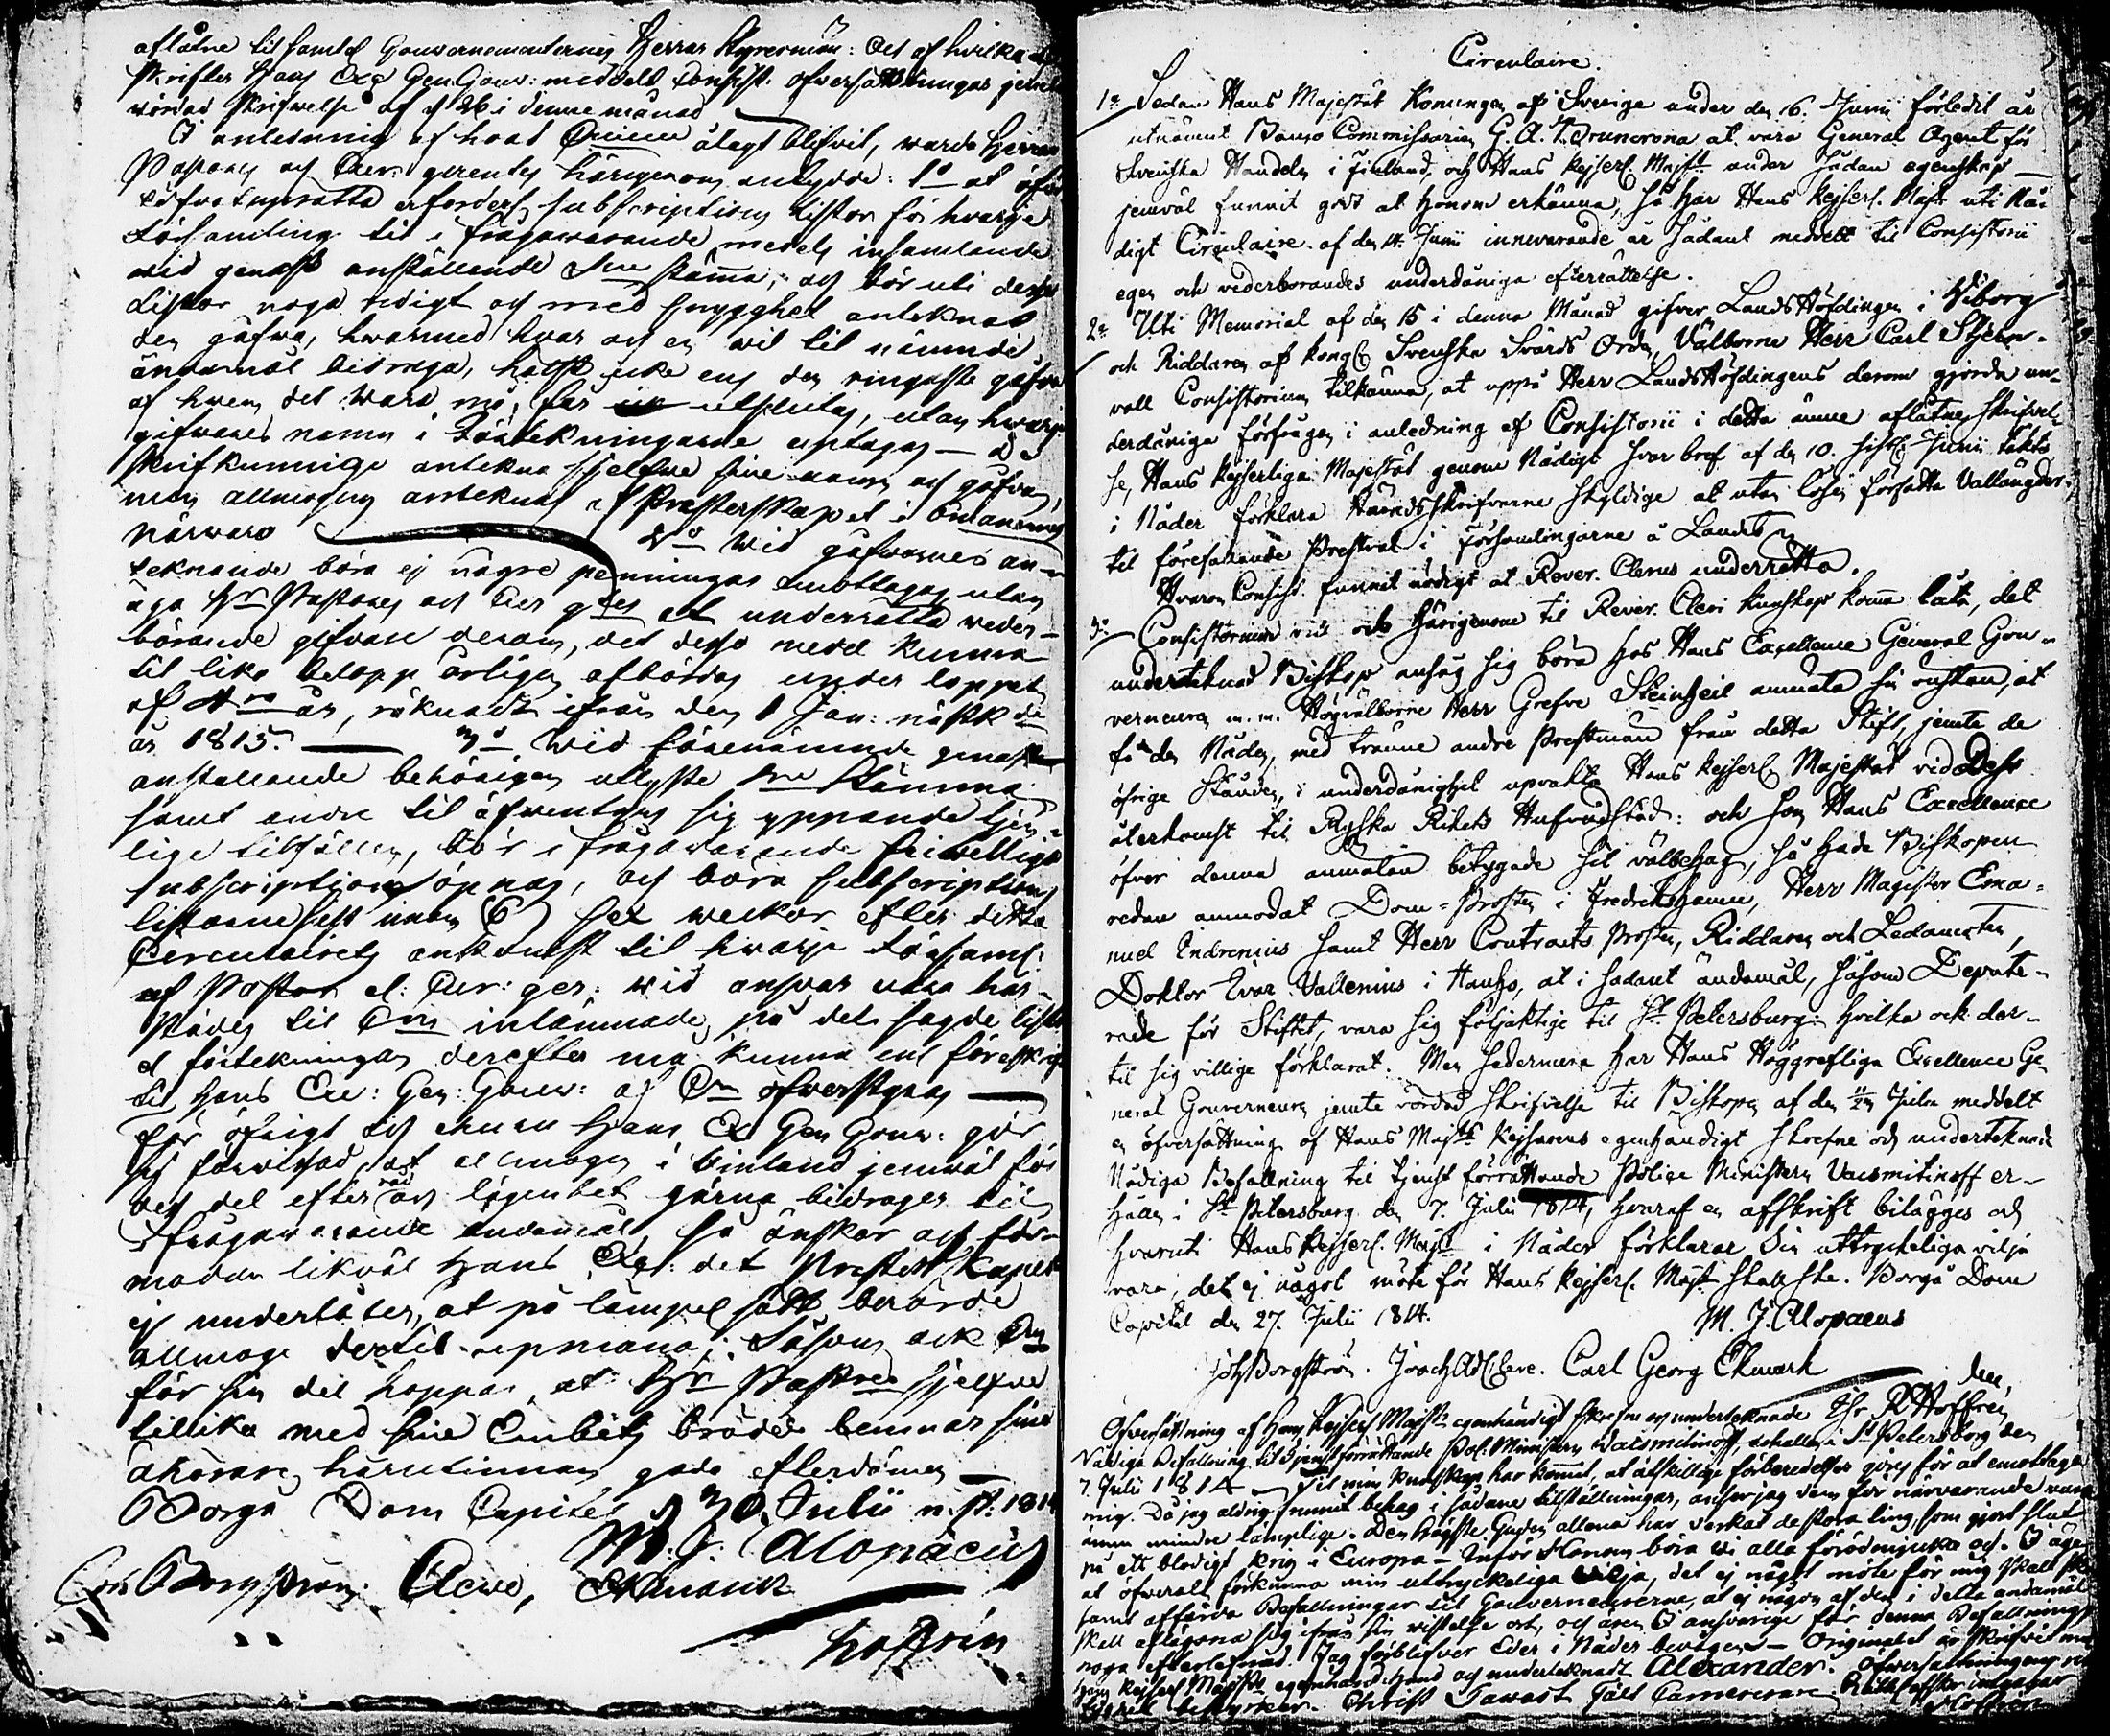 aflåtne til samtel. Gouvernementernes Herrar Styresmän: Det af hvilka
skrifter Hans Exc Gen. Gouv: meddelt Consist. öfversättningar jemte
vördad skrifwelse af d 26 i denne månad
I anledning af hvad Domen ålagt blifvit, warda Herrar
Pastores och Curr. gerentes härigenom anbydde: 1o at
uprätta erforderl. subscriptions listor för hvarje
Församling til i frågawarande medels insamlande
wid genast anställande Sne stämma; och bör uti desse
Listor noga redigt och med snygghet antecknas
den gåfwa, hwarmed hvar och en wil til nämnde
ändamål bidraga, hälst icke ens den ringaste gåfwa
af hwem det wara må, får utslutas, utan hwarje
gifwares namn i Förtekningarne uptagas — de
skrifkunnige antekna sjelfwe sine namn och gåfwor,
men allmogens anteknas af Presterskapet i
närwaro — 2o Wid gåfwornes an-
teknande böra ej någre penningar emottagas utan
äga Hr Pastores och Cur gtes at underrätta weder-
börande gifware derom, det desse medel kunna
til lika belopp årligen afbördas under loppet
af år, räknadt ifrån den 1 Jan: nästk
år 1815. — 3o Wid förenämnde genast
anställande behörigen utlyste Sne Stämma
samt andre til äfwentyrs sig yppande tjen-
lige tilfällen, bör i frågawarande friwillige
subscription öpnas, och böra subscriptions
listorne sist innom (6) sex weckor efter detta
Circulairets ankomst til hvarje Församl:
af Pastor el: Cur: ger: wid answar wara här-
städes til Cm inlämnade, på det sagde listor
el förtekningar derefter må kunna
til Hans Exc: Gen: Gouv: af Cm öfversändas —
För öfrigt och ehuru Hans Ex Gen Gouv: gör
sig förvissad, at allmogen i Finland jemwäl för
des del efter råd och lägenhet gärna bidrager til
i frågawarande ändamål, så önskar och för-
modar likwäl Hans Exc: det Presterskapet
ej underlåter, at på lämpel. sätt berörde
allmoge dertil upmana; Såsom ock Cm
för sin del hoppas, at Hr Pastores sjelfwe
tillika med sine Embets bröder lemnar sine
åhörare härutinnan goda efterdömen —
Borgå Dom Capitel d 30. Julii n. st. 1814
M. J. Alopaeus
Borgström. Cleve, Ekmark
Hoffrén
Circulaire.
1o Sedan Hans Majestät Konungen af Sverige under den 16. Junii förledit år
utnämnt Banco Commissarien G. A. T. Bruncrona at vara General Agent för
Svenska Handeln i Finland, och Hans Kejserl. Majst under sådan egenskap
jemväl funnit godt at honom erkänna, så har Hans Kejserl. Majst uti Nå-
digt Circulaire af den 14. Junii innevarande år sådant meddelt til Consistorii
egen och vederbörandes underdåniga efterrättelse.
2o Uti Memorial af den 15 i denna Månad gifver LandsHöfdingen i Viborg
och Riddaren af Kongl. Svenska Svärds Orden, Välborne Herr Carl Stjern-
vall Consistorium tilkänna, at uppå Herr LandsHöfdingens derom gjorda un-
derdåniga förfrågan i anledning af Consistorii i detta ämne aflåtne skrifvel-
se, Hans Kejserliga Majestät genom Nådigt svar bref af den 10. sistl. Junii täkts
i Nåder förklara Häradsskrifvarne skyldige at utan lösen författa Vallängder
til förefallande Prestval i Församlingarne å Landet.
Hvarom Consist. funnit nödigt at Rever. Clerus underrätta.
3o Consistorium vil ock härigenom til Rever. Cleri kunskap komma låta, det
undertecknad Biskop ansåg sig böra hos Hans Excellence General Gou-
verneuren m. m. Högvälborne Herr Grefve Steinheil anmäla sin önskan, at
få den Nåden, med tvänne andre Prestmän från detta Stift, jemte de
öfrige Stånden, i underdånighet upvakta Hans Kejserl. Majestät vid Dess
återkomst til Ryska Rikets Hufvudstad: och som Hans Excellence
öfver denna anmälan betygade sit välbehag, så hade Biskopen
redan anmodat Dom-Prosten i Fredrikshamn, Herr Magister Ema-
nuel Indrenius samt Herr Contracts Prosten, Riddaren och Ledamoten,
Doktor Ivar Vallenius i Hauho, at i sådant ändamål, såsom Depute-
rade för Stiftet, vara sig följaktige til St Petersburg. hvilka ock der-
til sig villige förklarat. Men sedermera har Hans Höggrefliga Excellence Ge-
neral Gouverneuren jemte vördad skrifvelse til Biskopen af den Julii meddelt
en öfversättning af Hans Majsts Kejsarens egenhändigt skrefne och undertecknade
Nådiga Befallning til tjenst förrättande Police Ministern Vaesmitinoff er-
hållen i St Petersburg den 7. Julii 1814, hvaraf en afskrift bilägges och
hvaruti Hans Kejserl. Majst i Nåder förklarar Sin uttryckeliga vilja
vara, det ej något möte för Hans Kejserl. Majst skall ske. Borgå Dom
Capitel den 27. Julii 1814.
M. J. Alopaeus
Joh Borgström. Joach Ad Cleve. Carl Georg Ekmark
P Hoffrén
Öfversättning af Hans Kejserl Majsts egenhändigt skrefne och undertecknade
Nådiga Befallning til tjenst förrättande Pol: Ministern Vaesmitinoff, erhållen i St Petersborg den
7. Julii 1814 — Til min kundskap har kommit, at åtskillige förberedelser göras för at emottaga
mig. Då jag aldrig funnit behag i sådane tilställningar, anser jag dem för närvarande vara
ännu mindre lämplige. Den högste Guden allena har verkat de stora ting, som gjort slut
på ett blodigt krig i Europa — Inför Honom böra wi alla förödmjuka oss. I äger
at öfverallt förkunna min uttryckeliga wilja, det ej något möte för mig skall ske
samt affärda Befallningar til Gouverneurerne, at ej någon af dem i detta ändamål
skall aflägsna sig ifrån sin vistelse ort, och ären I answarige för denna Befallnings
noga efterlefnad. Jag förblifver Eder i Nåder bevågen — Originalet är skrifvit med
Hans Kejserl Majsts egen hand och undertecknadt Alexander. Öfversättningens
bestyrker. Christ Tawast
Hoffrén